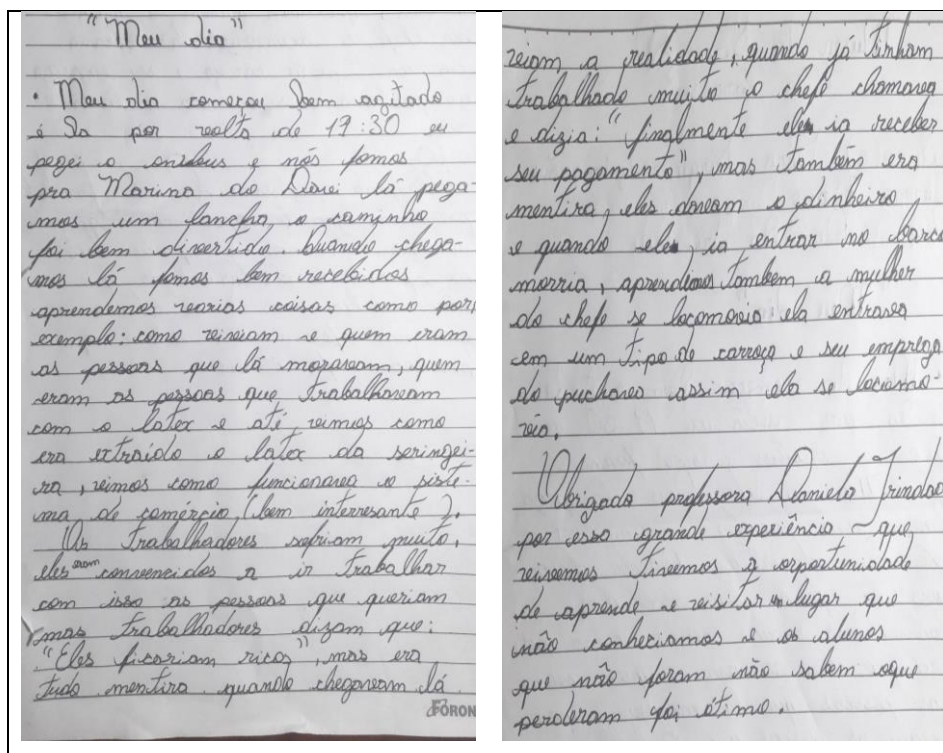 "Meu dia"
• Meu dia começou bem agitado
é la por volta de 17:30 eu
pegei o onibus e nós fomos
pra Marina do Davi lá pega-
mos um lancha, o caminho
foi bem divertido. Quando chega-
mos lá fomos bem recebidos
aprendemos varias coisas como por,
exemplo: como viviam e quem eram
as pessoas que lá moravam, quem
eram as pessoas que trabalhavam
com o latex e até, vimos como
era extraído o latex da seringei-
ra, vimos como funcionava o siste-
ma de comércio, (bem interresante).
Os trabalhadores sofriam muito,
eles eram convencidos a ir trabalhar
com isso as pessoas que queriam
mas trabalhadores dizam que:
"Eles ficariam ricos", mas era
tudo mentira quando chegavam lá
FORON
viam a realidade, quando já tinham
trabalhado muito o chefe chamava
e dizia: "finalmente ele ia receber
seu pagamento", mas também era
mentira, eles davam o dinheiro,
e quando ele, ia entrar no barco
morria, aprendemos tambem a mulher
do chefe se locomovia ela entrava
em um tipo de carroça e seu emprega
do puchava assim ela se locomo-
via.
Obrigada professora Daniela Trindad
por essa grande experiência que,
vivemos tivemos a oportunidade
de aprende e visitar um lugar que
não conheciamos e os alunos
que não foram não sabem oque
perderam foi ótimo.